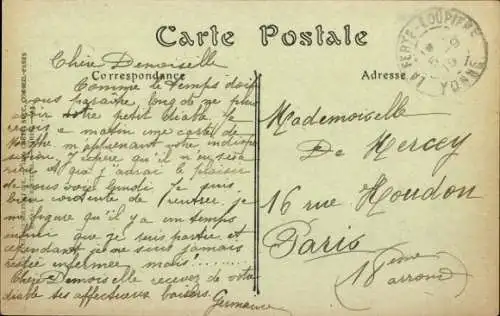 Carte Postale
Correspondance
Adresse
LA FERTE-LOUPIERE
YONNE
Chère Demoiselle
Comme le temps doit
vous paraître long de ne plus
avoir votre petit diable. Je
reçois ce matin une carte de
Marthe m'apprenant votre indispo
sition. J'espère qu'il n'en sera
rien et que j'aurai le plaisir
de vous voir lundi. Je suis
bien contente de rentrer, je
me figure qu'il y a un temps
infini que je suis partie et
cependant je ne suis jamais
restée enfermée mais!.......
Chère Demoiselle recevez de votre
diable ses affectueux baisers.
Germaine
Mademoiselle
De Mercey
16 rue Houdon
Paris
18ème
arrond